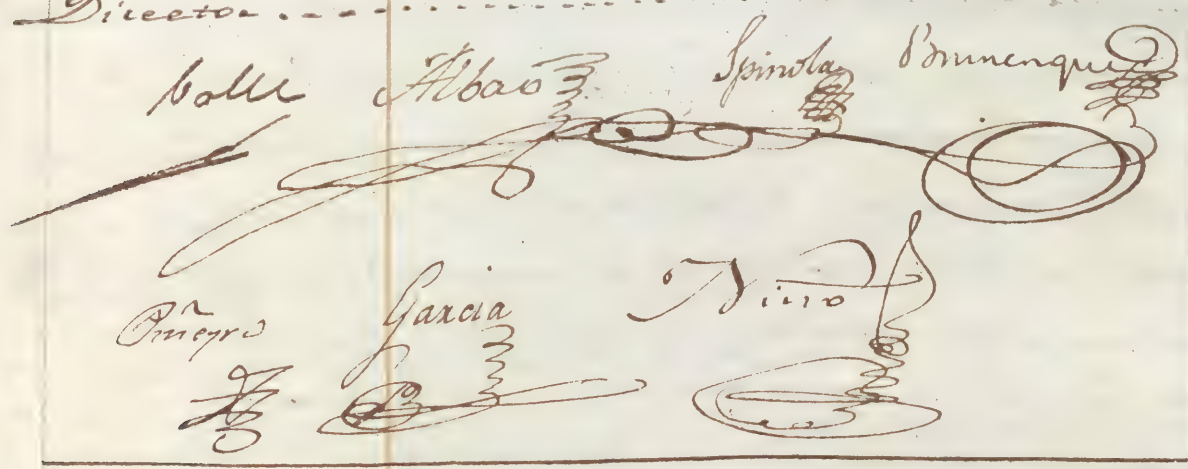 Director
Valle Albao Spinola Brunenque
Piñeyro Garcia Nino